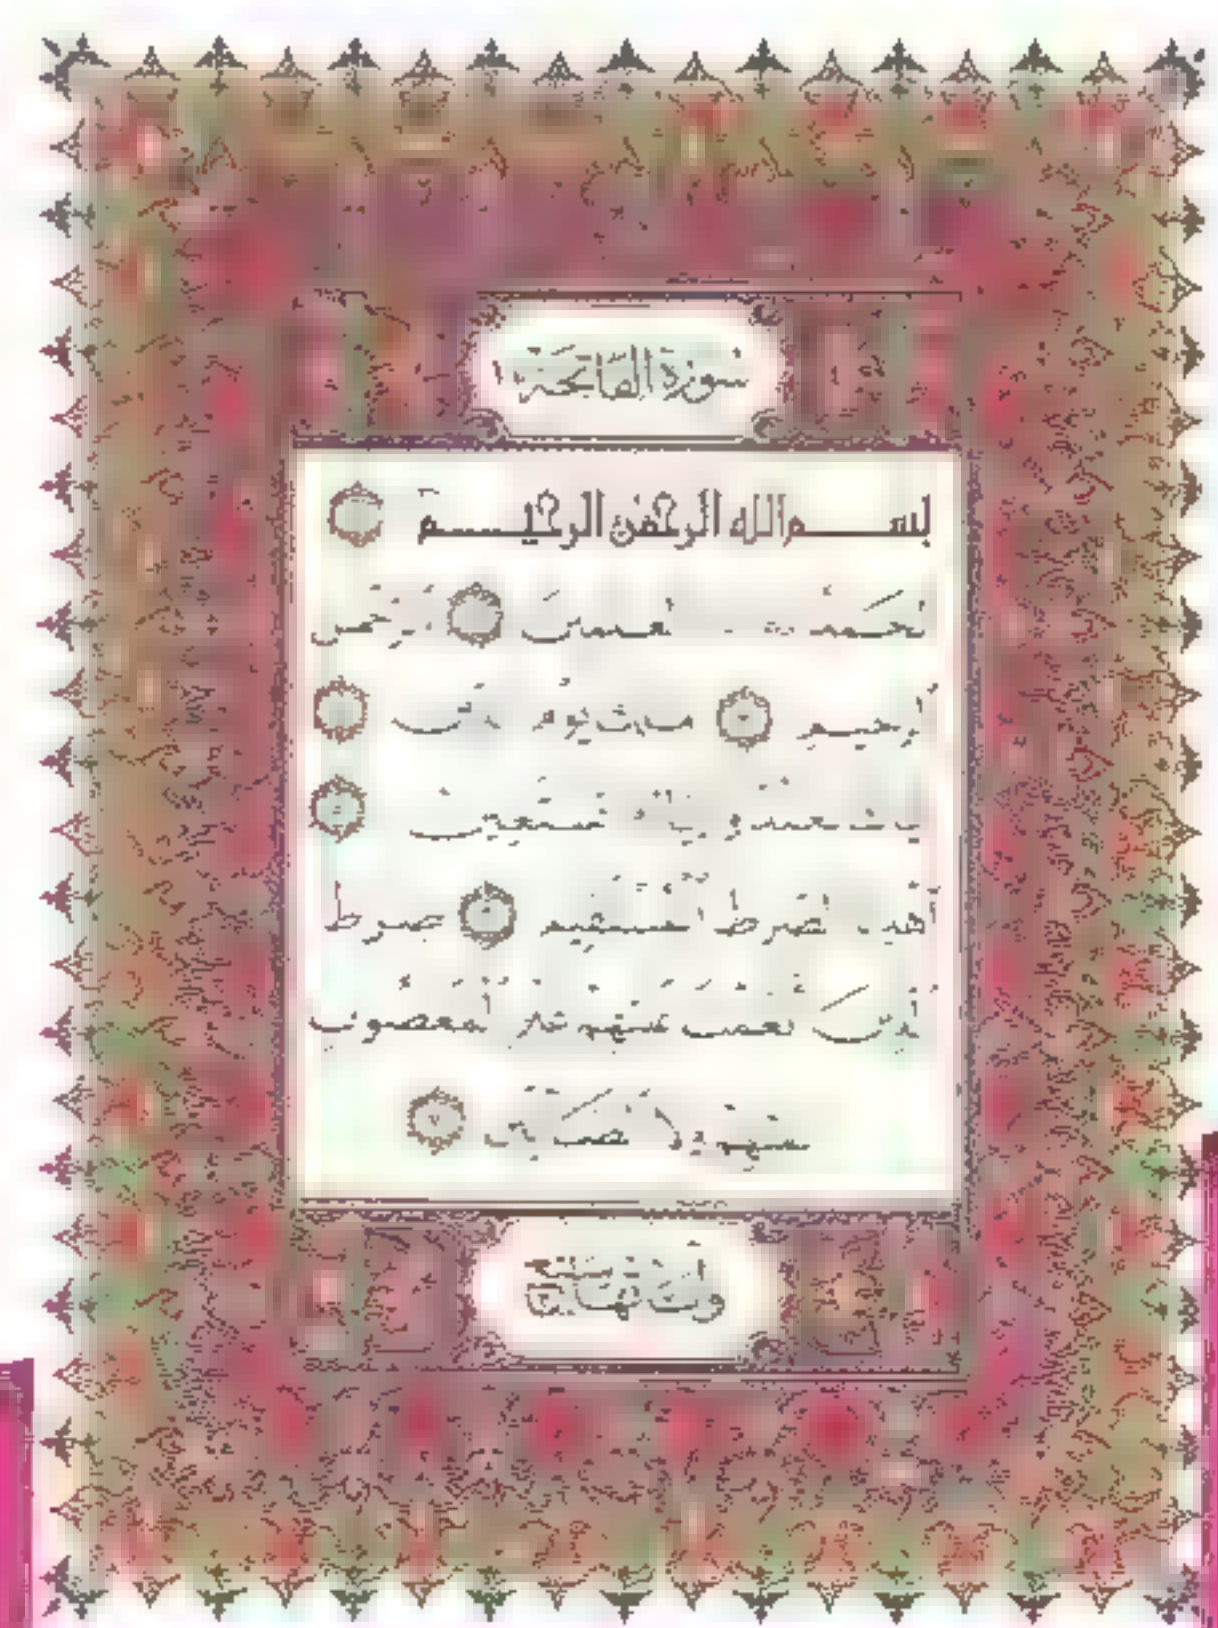 سورة الفاتحة ١
بسم الله الرحمن الرحيم
الحمد العلمين الرحمن
الرحيم ملك يوم الدين
إياك نعبد وإياك نستعين
اهدنا الصرط المستقيم صرط
الذين أنعمت عليهم غير المغضوب
عليهم ولا الضالين ٧